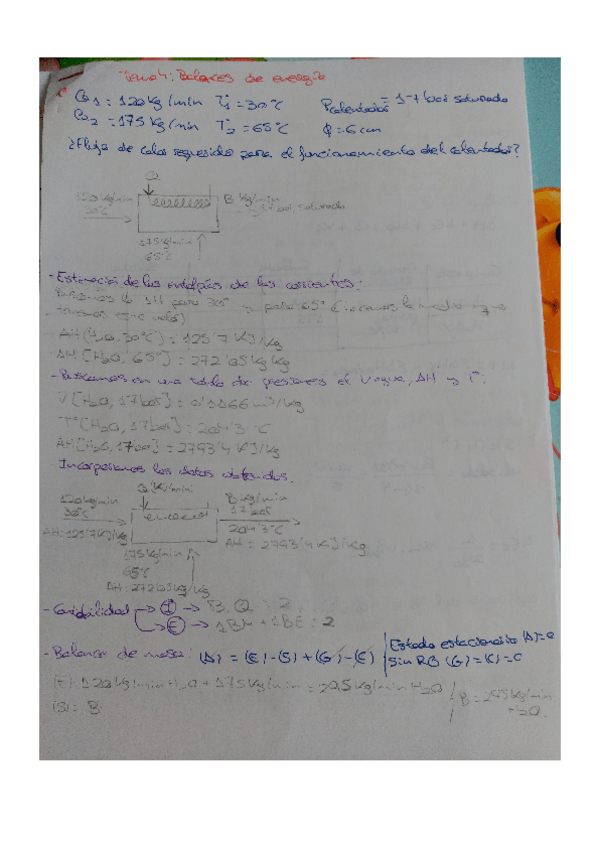 Tema 4: Balances de energía
Q1 = 120 kg/min T1 = 30°C Pcalentador = 17 bar saturado
Q2 = 175 kg/min T2 = 65°C φ = 6 cm
¿Flujo de calor requerido para el funcionamiento del calentador?
Q
120 kg/min B kg/min
30°C 17 bar, saturado
175 kg/min
65°C
- Estimación de las entalpías de las corrientes:
Buscamos la ΔH para 30° y para 65°
ΔH (H2O, 30°C) = 125'7 KJ/Kg
ΔH [H2O, 65°] = 272'05 kg kg
- Buscamos en una tabla de presiones el V agua, ΔH y T°.
V [H2O, 17 bar] = 0'1166 m³/kg
T° [H2O, 17 bar] = 204'3 °C
ΔH [H2O, 17 bar] = 2793'4 KJ/Kg
Incorporamos los datos obtenidos.
120 kg/min B kg/min
30°C 17 bar
204'3°C
ΔH = 125'7 KJ/Kg ΔH = 2793'4 KJ/Kg
175 kg/min
65°C
- (I) → B, Q = 2
(E) → 1BM + 1BE = 2
- Balance de masa: (A) = (E) - (S) + (G) - (C) Estado estacionario (A) = 0
Sin RQ (G) = (C) = 0
(E): 120 kg/min H2O + 175 kg/min = 295 kg/min H2O B = 295 kg/min
(S) = B H2O.